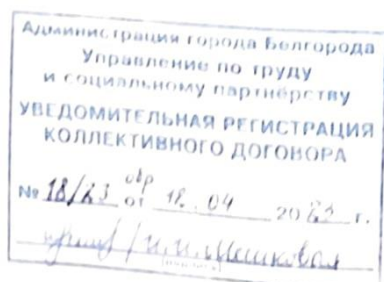 Администрация города Белгорода
Управление по труду
и социальному партнёрству
УВЕДОМИТЕЛЬНАЯ РЕГИСТРАЦИЯ
КОЛЛЕКТИВНОГО ДОГОВОРА
№ 18/23 обр от 18.04 2023 г.
/ И.И. Мешкова